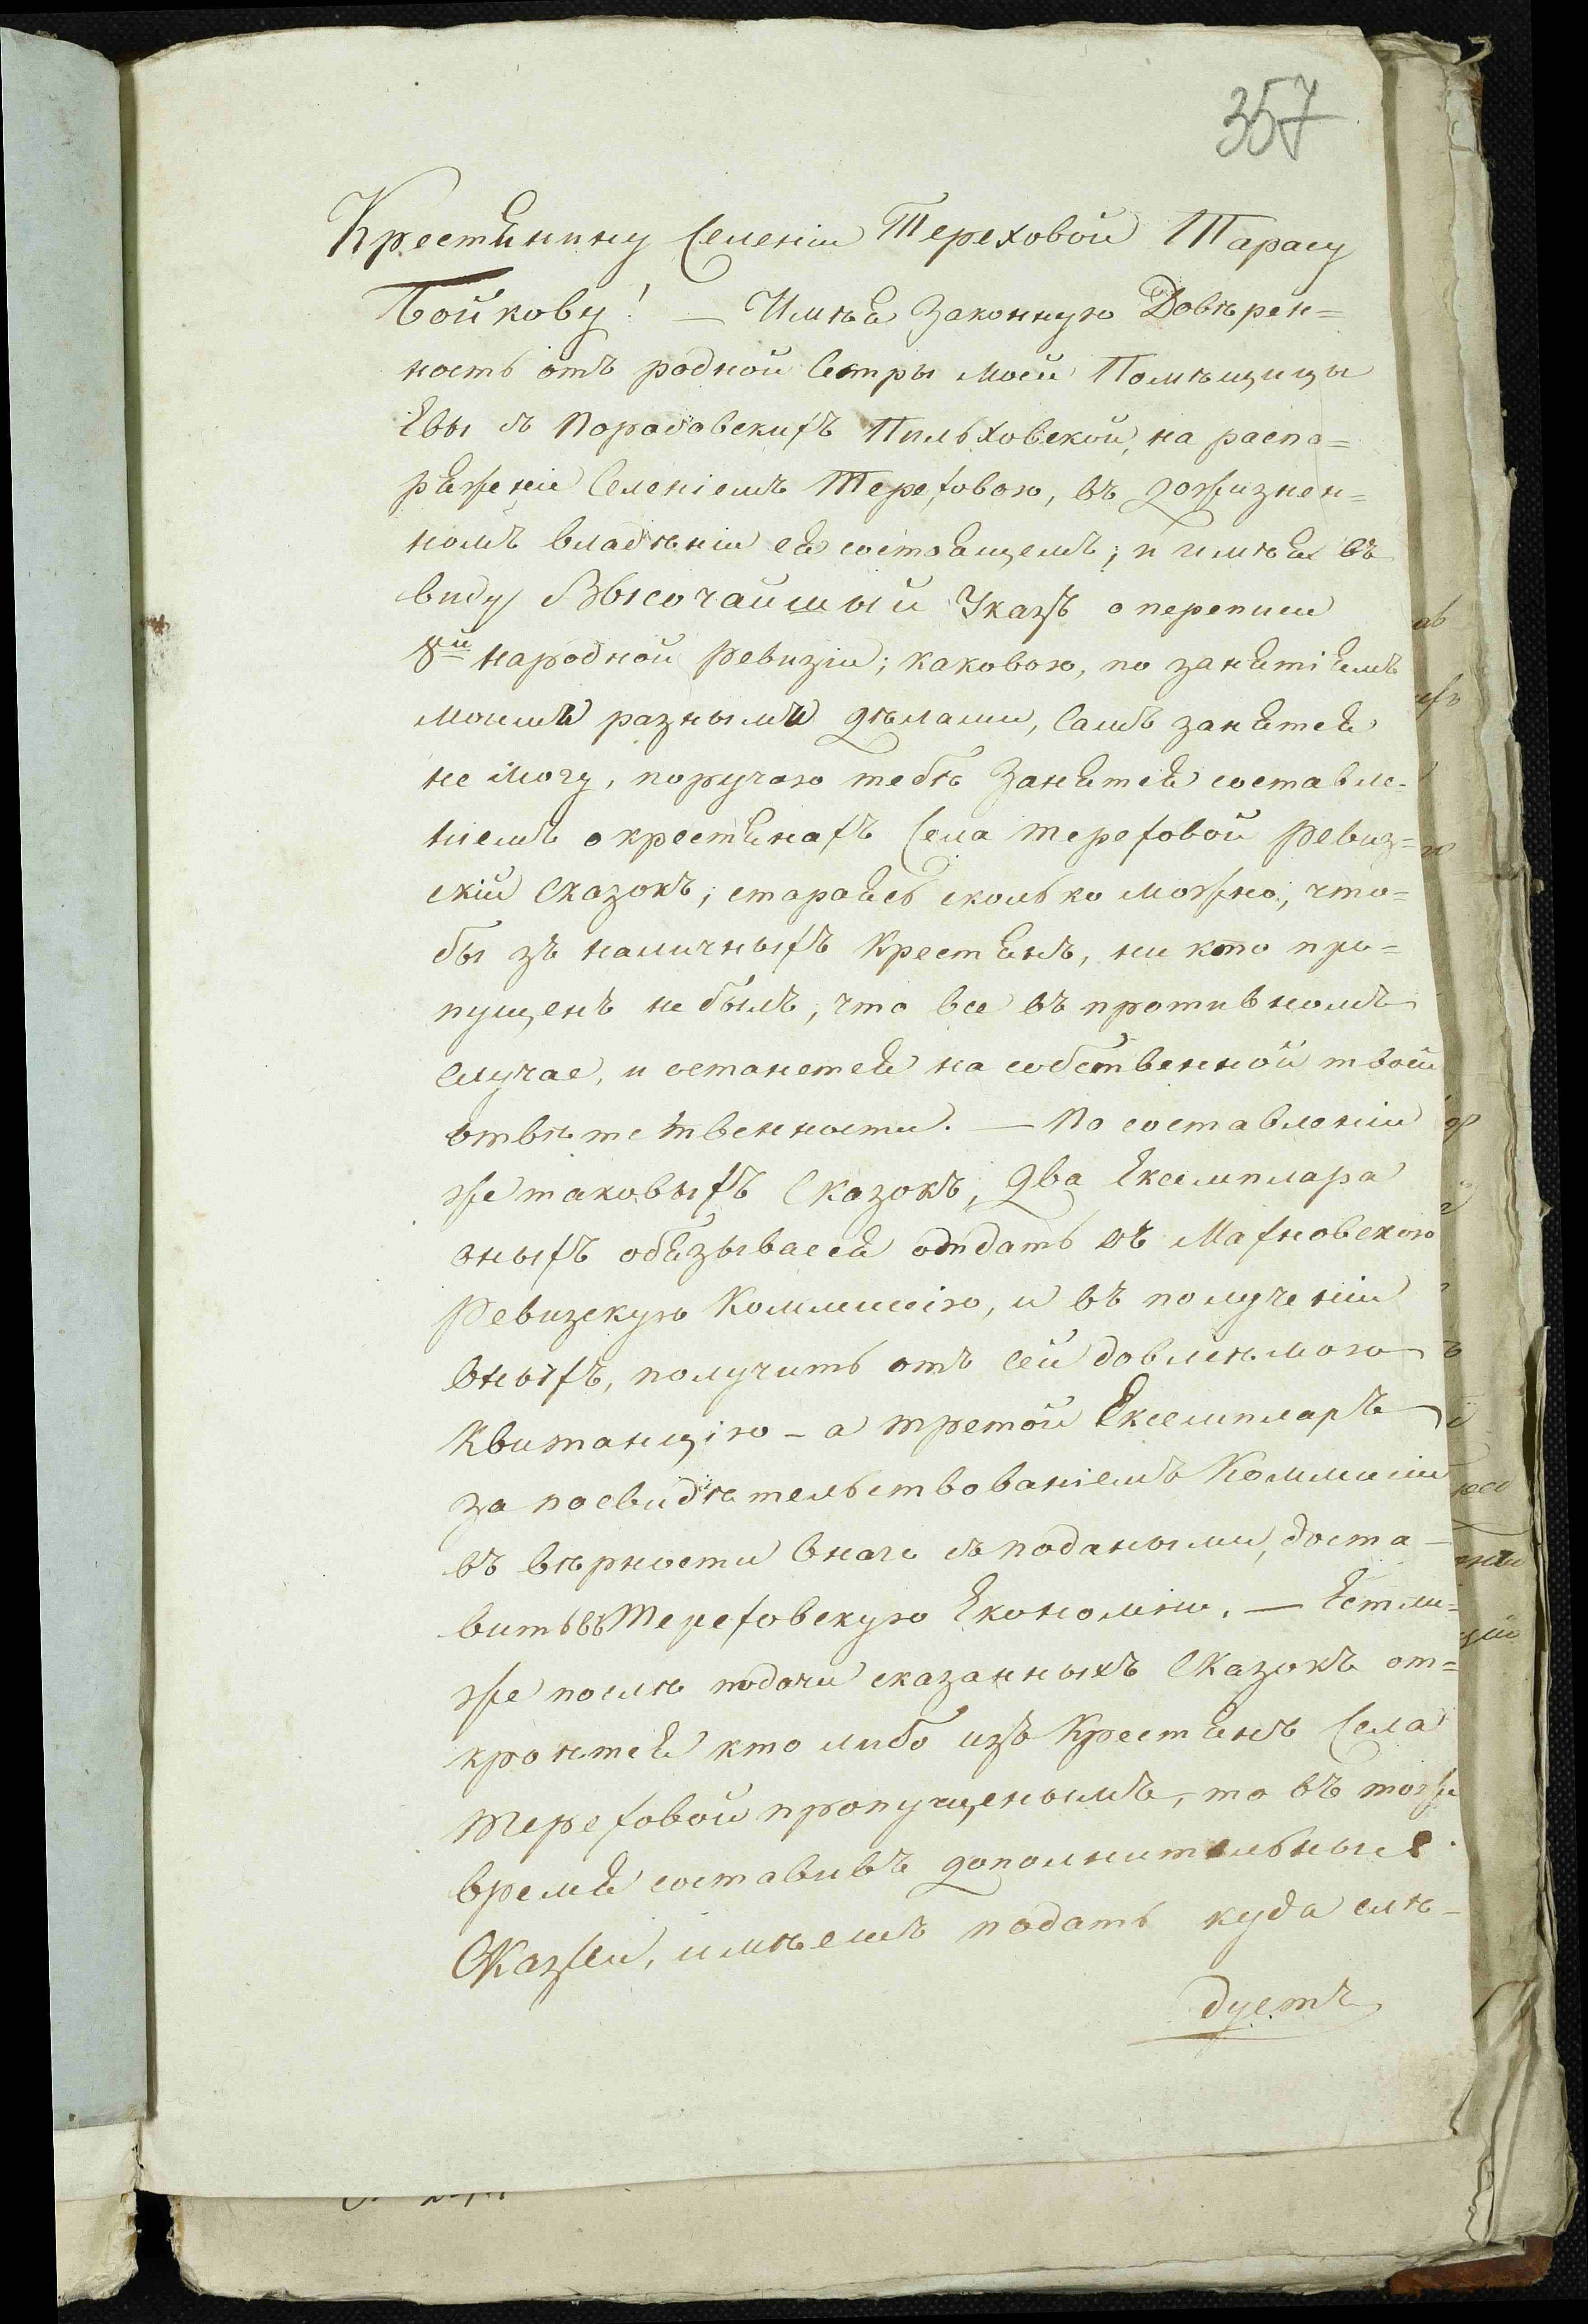 357
Крестянину Селенія Тереховой Тарасу
Бойкову! — Имѣя Законную Довѣрен=
ность отъ родной Сестры моей Помѣщицы
Евы съ Порадовскихъ Пильховской, на распо=
ряженіе Селеніемъ Тереховою, въ дожизнен=
номъ владѣніи ея состоящемъ; и имѣя въ
виду Высочайшый Указъ о переписи
8й народной Ревизіи; каковою, по занятіямъ
моимъ разнымы дѣлами, Самъ занятся
не могу, поручаю тебѣ Занятся составле-
ніемъ о крестянахъ Села Тереховой Ревиз=
скій Сказокъ; стараясь сколько можно, что=
бы зъ наличныхъ Крестянъ, ни кто про=
пущенъ не былъ, что все въ противномъ
Случае, и останется на собственной твоей
отвѣтственности. — По составленіи
же таковыхъ Сказокъ, Два Екземпляра
оныхъ обязываеся отдать въ Махновскою
Ревизскую Коммиссію, и въ полученіи
оныхъ, получить отъ сей довлѣемою
Квитанцію – а третой Екземпляръ
за посвидѣтельствованіемъ Коммисіи
въ вѣрности онаго съ подаными, доста–
вить въ Тереховскую Економію. — Естли=
же послѣ подачи сказанныхъ Сказокъ от=
кроется кто либо изъ Крестянъ Села
Тереховой пропущенымъ, то въ тоже
время составивъ дополнительные
Сказки, имѣешъ подать куда слѣ–
дуетъ